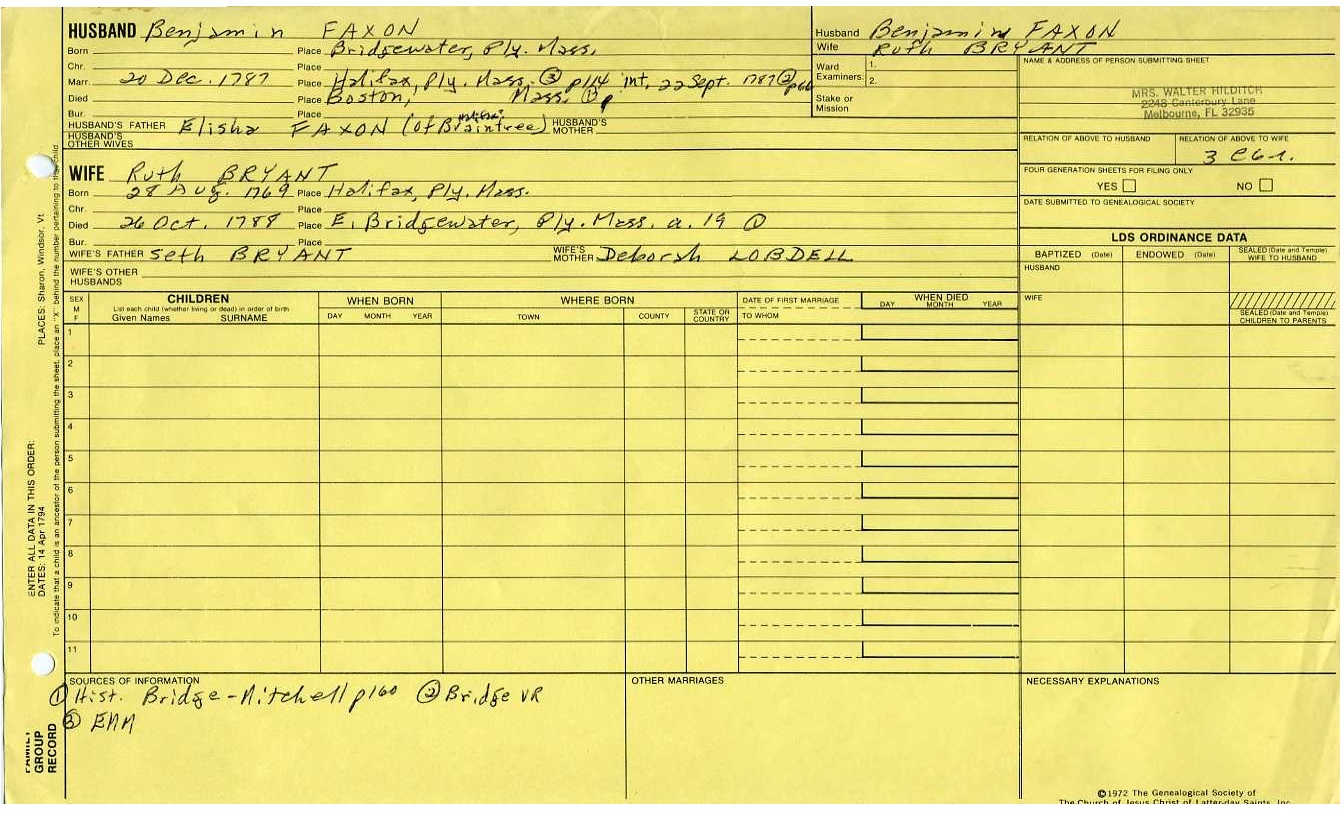 HUSBAND Benjamin FAXON
Born Place Bridgewater, Ply. Mass.
Chr. Place
Marr. 20 Dec. 1787 Place Halifax, Ply. Mass. ③ p114 int. 22 Sept. 1787 ②
Died Place Boston, Mass. ① p
Bur. Place
HUSBAND'S FATHER Elisha FAXON (of Braintree) Halifax? HUSBAND'S MOTHER
HUSBAND'S OTHER WIVES
Husband Benjamin FAXON
Wife Ruth BRYANT
Ward Examiners: 1. 2.
Stake or Mission
NAME & ADDRESS OF PERSON SUBMITTING SHEET
MRS. WALTER HILDITCH
2248 Canterbury Lane
Melbourne, FL 32935
RELATION OF ABOVE TO HUSBAND RELATION OF ABOVE TO WIFE
3 C6r.
FOUR GENERATION SHEETS FOR FILING ONLY
YES NO
DATE SUBMITTED TO GENEALOGICAL SOCIETY
WIFE Ruth BRYANT
Born 28 Aug. 1769 Place Halifax, Ply. Mass.
Chr. Place
Died 26 Oct. 1788 Place E. Bridgewater, Ply. Mass. a. 19 ①
Bur. Place
WIFE'S FATHER Seth BRYANT WIFE'S MOTHER Deborah LOBDELL
WIFE'S OTHER HUSBANDS
LDS ORDINANCE DATA
BAPTIZED (Date) ENDOWED (Date) SEALED (Date and Temple) WIFE TO HUSBAND
HUSBAND
WIFE
SEALED (Date and Temple) CHILDREN TO PARENTS
SEX M F
CHILDREN
List each child (whether living or dead) in order of birth
Given Names SURNAME
WHEN BORN
DAY MONTH YEAR
WHERE BORN
TOWN COUNTY STATE OR COUNTRY
DATE OF FIRST MARRIAGE
TO WHOM
WHEN DIED
DAY MONTH YEAR
1
2
3
4
5
6
7
8
9
10
11
SOURCES OF INFORMATION
① Hist. Bridge-Mitchell p160 ② Bridge VR
③ EMM
OTHER MARRIAGES
NECESSARY EXPLANATIONS
©1972 The Genealogical Society of
The Church of Jesus Christ of Latter-day Saints, Inc.
FAMILY GROUP RECORD
ENTER ALL DATA IN THIS ORDER:
DATES: 14 Apr 1794
PLACES: Sharon, Windsor, Vt.
To indicate that a child is an ancestor of the person submitting the sheet, place an "X" behind the number pertaining to that child